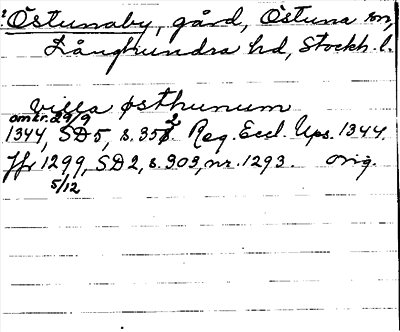 Östunaby, gård, Östuna sn,
Långhundra hd, Stockh. l.
villa østhunum
omkr. 29/9
1344, SD5, s. 352. Reg. Eccl. Ups. 1344.
Jfr 1299, SD2, s. 303, nr. 1293. orig.
5/12